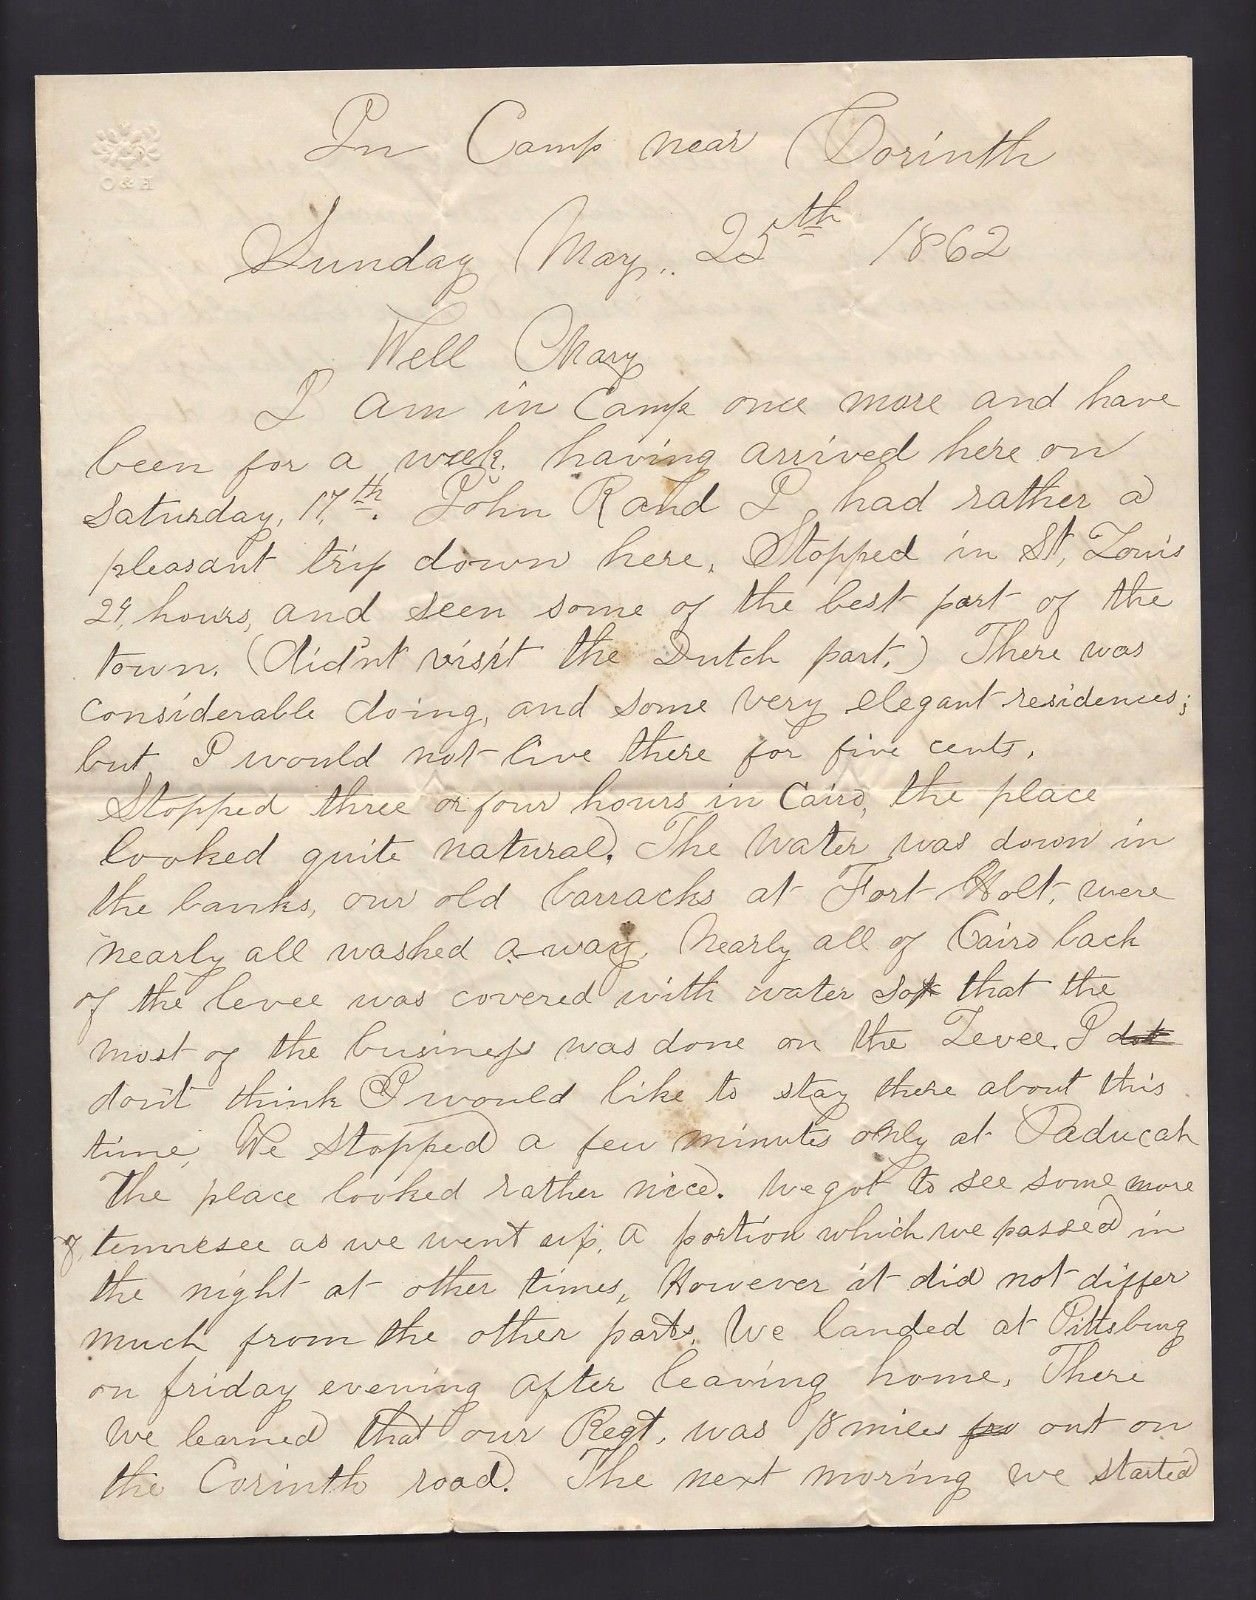 O & H
In Camp near Corinth
Sunday May.. 25th 1862
Well Mary
I am in Camp once more and have
been for a week. having arrived here on
Saturday, 17,th. John R and I had rather a
pleasant trip down here. Stopped in St, Louis
29, hours, and seen some of the best part of the
town. (did'nt visit the Dutch part.) There was
considerable doing, and some very elegant residences;
but I would not live there for five cents.
Stopped three or four hours in Cairo, the place
looked quite natural. The Water was down in
the banks, our old barracks at Fort Holt, were
nearly all washed a-way. Nearly all of Cairo back
of the levee was covered with water so that the
most of the business was done on the Levee. I
don't think I would like to stay there about this
time, We Stopped a few minutes only at Paducah
The place looked rather nice. We got to see some more
of tennesee as we went up, a portion which we passed in
the night at other times, However it did not differ
much from the other parts. We landed at Pittsburg
on friday evening after leaving home, There
we learned that our Regt, was 18 miles out on
the Corinth road. The next moring we started